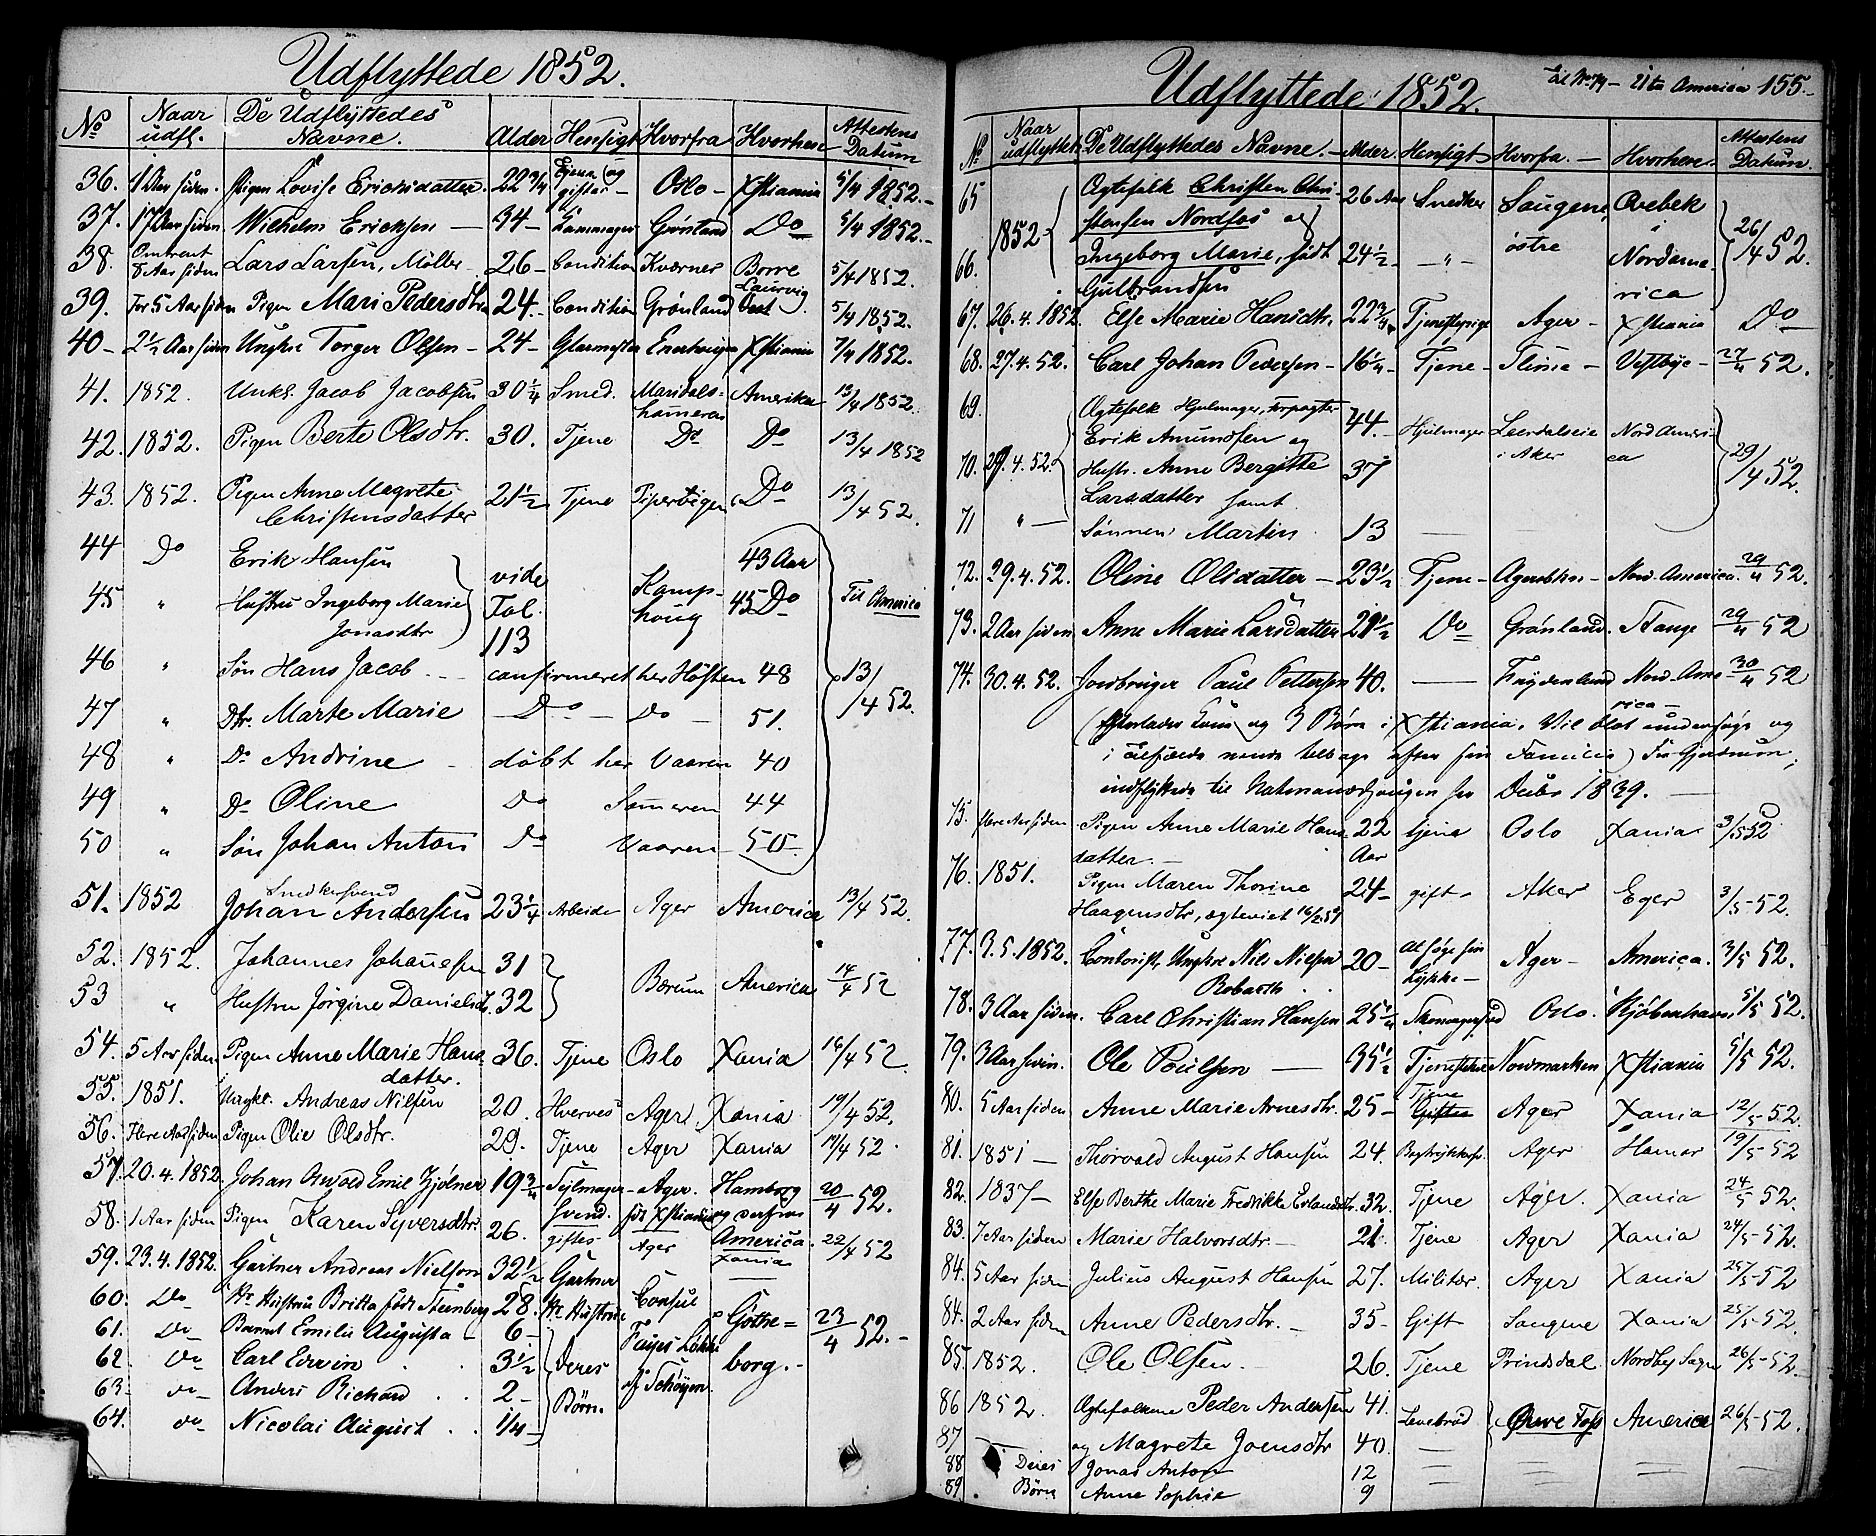 Udflyttede 1852.
No Naar udfl. De Udflyttedes Navne. Alder Hensigt Hvorfra Hvorhen Attestens Datum
36. 1 Aar siden. Pigen Lovise Ericksdatter. 22 3/4 Tjene og giftes Oslo - Xstiania 5/4 1852.
37. 17 Aar siden Wilhelm Ericksen 34 - Grønland Do 5/4 1852.
38. Omtrent 8 Aar siden Lars Larsen, Møller 26 - Condition Kværner Borre 5/4 1852.
39. For 5 Aar siden Pigen Mari Pedersdtr. 24. Condition Grønland Laurvig 5/4 1852.
40 - 2 1/2 Aar siden Ungkr Torger Olsen - 24 - Glarmester Xstiania 7/4 1852.
41. 1852. Unkr. Jacob Jacobsen 30 1/4 Smed. Maridals-hammeren Amerika 13/4 1852.
42. 1852. Pigen Berte Olsdtr. 30. Tjene Do Do 13/4 1852
43. 1852. Pigen Anne Magrete Christensdatter 21 1/2 Tjene Pipervigen Do 13/4 52.
44 Do Erik Hansen 43 Aar
45 " Hustru Ingeborg Marie Jonasdtr vide Fol. 113 Kamps-houg 45 Do Til America
46 " Søn Hans Jacob - confirmeret her Høsten 48 13/4 52.
47 " Dtr. Marte Marie - Do - Do - 51.
48 " Do Andrine - døbt her Vaaren 40
49 " Do Oline Do Sommeren 44
50 " Søn Johan Anton Do Vaaren 50.
51. 1852 Snedkersvend Johan Andersen 23 1/4 Arbeide Ager America 13/4 52.
52. 1852. Johannes Johannesen 31
53 " Hustru Jørgine Danielsd. 32 Bærum America 14/4 52
54. 5 Aar siden. Pigen Anne Marie Hansdatter. 36. Tjene Oslo Xania 16/4 52.
55. 1851. Ungkr. Andreas Nilsen 20. Hverves Ager Xania 19/4 52.
56. Flere Aar siden Pigen Olie Olsdtr. 29. Tjene Ager Xania 17/4 52.
57. 20.4.1852. Johan Oswald Emil Hjølner 19 3/4 Seilmager-svend. Ager. før Xstiania Hamborg og derfra America. 20/4 52.
58. 1 Aar siden Pigen Karen Syversdtr 26. giftes Ager Xania 22/4 52
59. 23.4.1852. Gartner Andreas Nielsen 32 1/2 Gartner
60. Do Hs Hustru Britta født Steenberg 28. Hs Hustrue Consul
61. Do Barnet Emilie Augusta 6 - Fayes Løkke Gothe- 23/4 52. -
62 Do Carl Edvin 3 1/2 Deres af Schøyen. borg. -
63 - do Anders Richard 2 - Børn
64. do Nicolai August 1/4 -
Udflyttede 1852. til No 79 - 21 to America 155 -
No Naar udflyttet De Udflyttedes Navne. - Alder. Hensigt Hvorfra. - Hvorhen. Attestens Datum.
65 Ægtefolk Christen Christensen Nordfos og 26 Aar Snedker Saugene, østre Ovebek i
66. 1852 Ingeborg Marie, født Gulbrandsen 24 1/2 - " - Nordame-rica 26/4 52.
67. 26.4.1852. Else Marie Hansdtr. 22 3/4 Tjenestepige Ager - Xstiania Do
68. 27.4.52. Carl Johan Pedersen - 16 1/4 - Tjene - - Vestbye - 27/4 52.
69. Ægtefolk Hjulmager, Forpagter Erik Amundsen og 44. Hjulmager i Aker Nord America
70. 29.4.52. Hustr. Anne Bergitte Larsdatter samt 37 29/4 52.
71 " - Sønnen Martin 13
72. 29.4.52. Oline Olsdatter - 23 1/2 Tjene - Nord. America. 29/4 52.
73. 2 Aar siden Anne Marie Larsdatter 21 1/2 Do Grønland. Stange 29/4 52
74. 30.4.52. Jordbruger Paul Pettersen 40. Frydenlund Nord-Ame-rica - 30/4 52
(Efterlader Kone og 3 Børn i Xstiania. Vil blot undersøge og
i tilfælde vende tilbage efter sin Familie) Fra Gjerdrum;
indflyttede til Debr 1839. -
75. flere Aar siden Pigen Anne Marie Hansdatter. - 22 Aar tjene Oslo Xania 3/5 52
76. 1851. Pigen Maren Thorine Haagensdtr, ægteviet 24 - gift - Aker Eger 3/5 - 52.
77. 3.5.1852. Contorist, Ungkr Nils Nilsen 20 - At søge sin Lykke - Ager - America. 3/5 52.
78. 3 Aar siden. Carl Christian Hansen 25 1/4 Skomagersvd Oslo. Kjøbenhavn. 5/5 52.
79. 3 Aar siden. Ole Poulsen - 35 1/2 Nordmarken Xstiania 5/5 52.
80. 5 Aar siden Anne Marie Arnesdtr. 25 - Tjene Giftes Ager Xania 12/5 - 52.
81. 1851 - Thorvald August Hansen 24. Ager Hamar 19/5 - 52
82. 1837 - Else Berthe Marie Fredrikke Erlandsdtr. 32. Tjene Ager. Xania 24/5 52.
83. 7 Aar siden Marie Halvorsdtr. - 21 Tjene Ager Xania 24/5 - 52.
84. 5 Aar siden Julius August Hansen 27. Militær. Ager Xania 25/5 - 52
84. 2 Aar siden Anne Pedersdtr. - 35 - Gift - Saugene Xania 25/5 - 52.
85. 1852. Ole Olsen. 26. Tjene Prindsdal. Nordby Sogn 26/5 - 52.
86 1852. Ægtefolkene Peder Andersen 41. Levebrød Øvre Foss America 26/5 - 52.
87 - og Magrete Joensdtr 40.
88 Deres Jonas Anton 12
89. Børn Anne Sophie 9